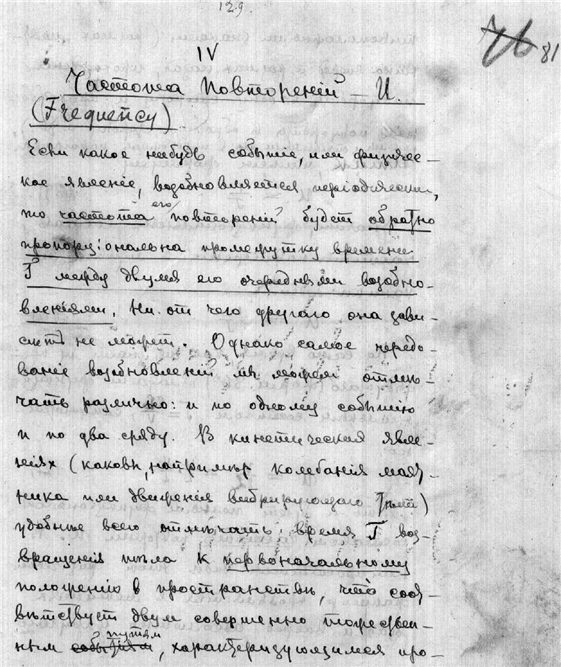 129.
76 81
IV
Частота Повтореній – И.
(Frequency)
Если какое нибудь событіе, или физичес-
кое явленіе, возобновляется періодически,
его
то частота повтореній будет обратно
пропорціональна промежутку времени
T между двумя его очередными возобно-
вленіями. Ни от чего другого она зави-
сеть не может. Однако самое чередо-
ваніе возобновленій мы можем отмѣ-
чать различно: и по одному событію
и по два сряду. В кинетических явле-
ніях (каковы, напримѣр колебанія маят-
ника или движенія вибрирующаго тѣла)
удобнѣе всего отмѣчать время T воз-
вращенія тѣла к первоначальному
положенію в пространствѣ, что соот-
вѣтствует двум совершенно тожествен-
путям
ным событіям, характеризующимся про-